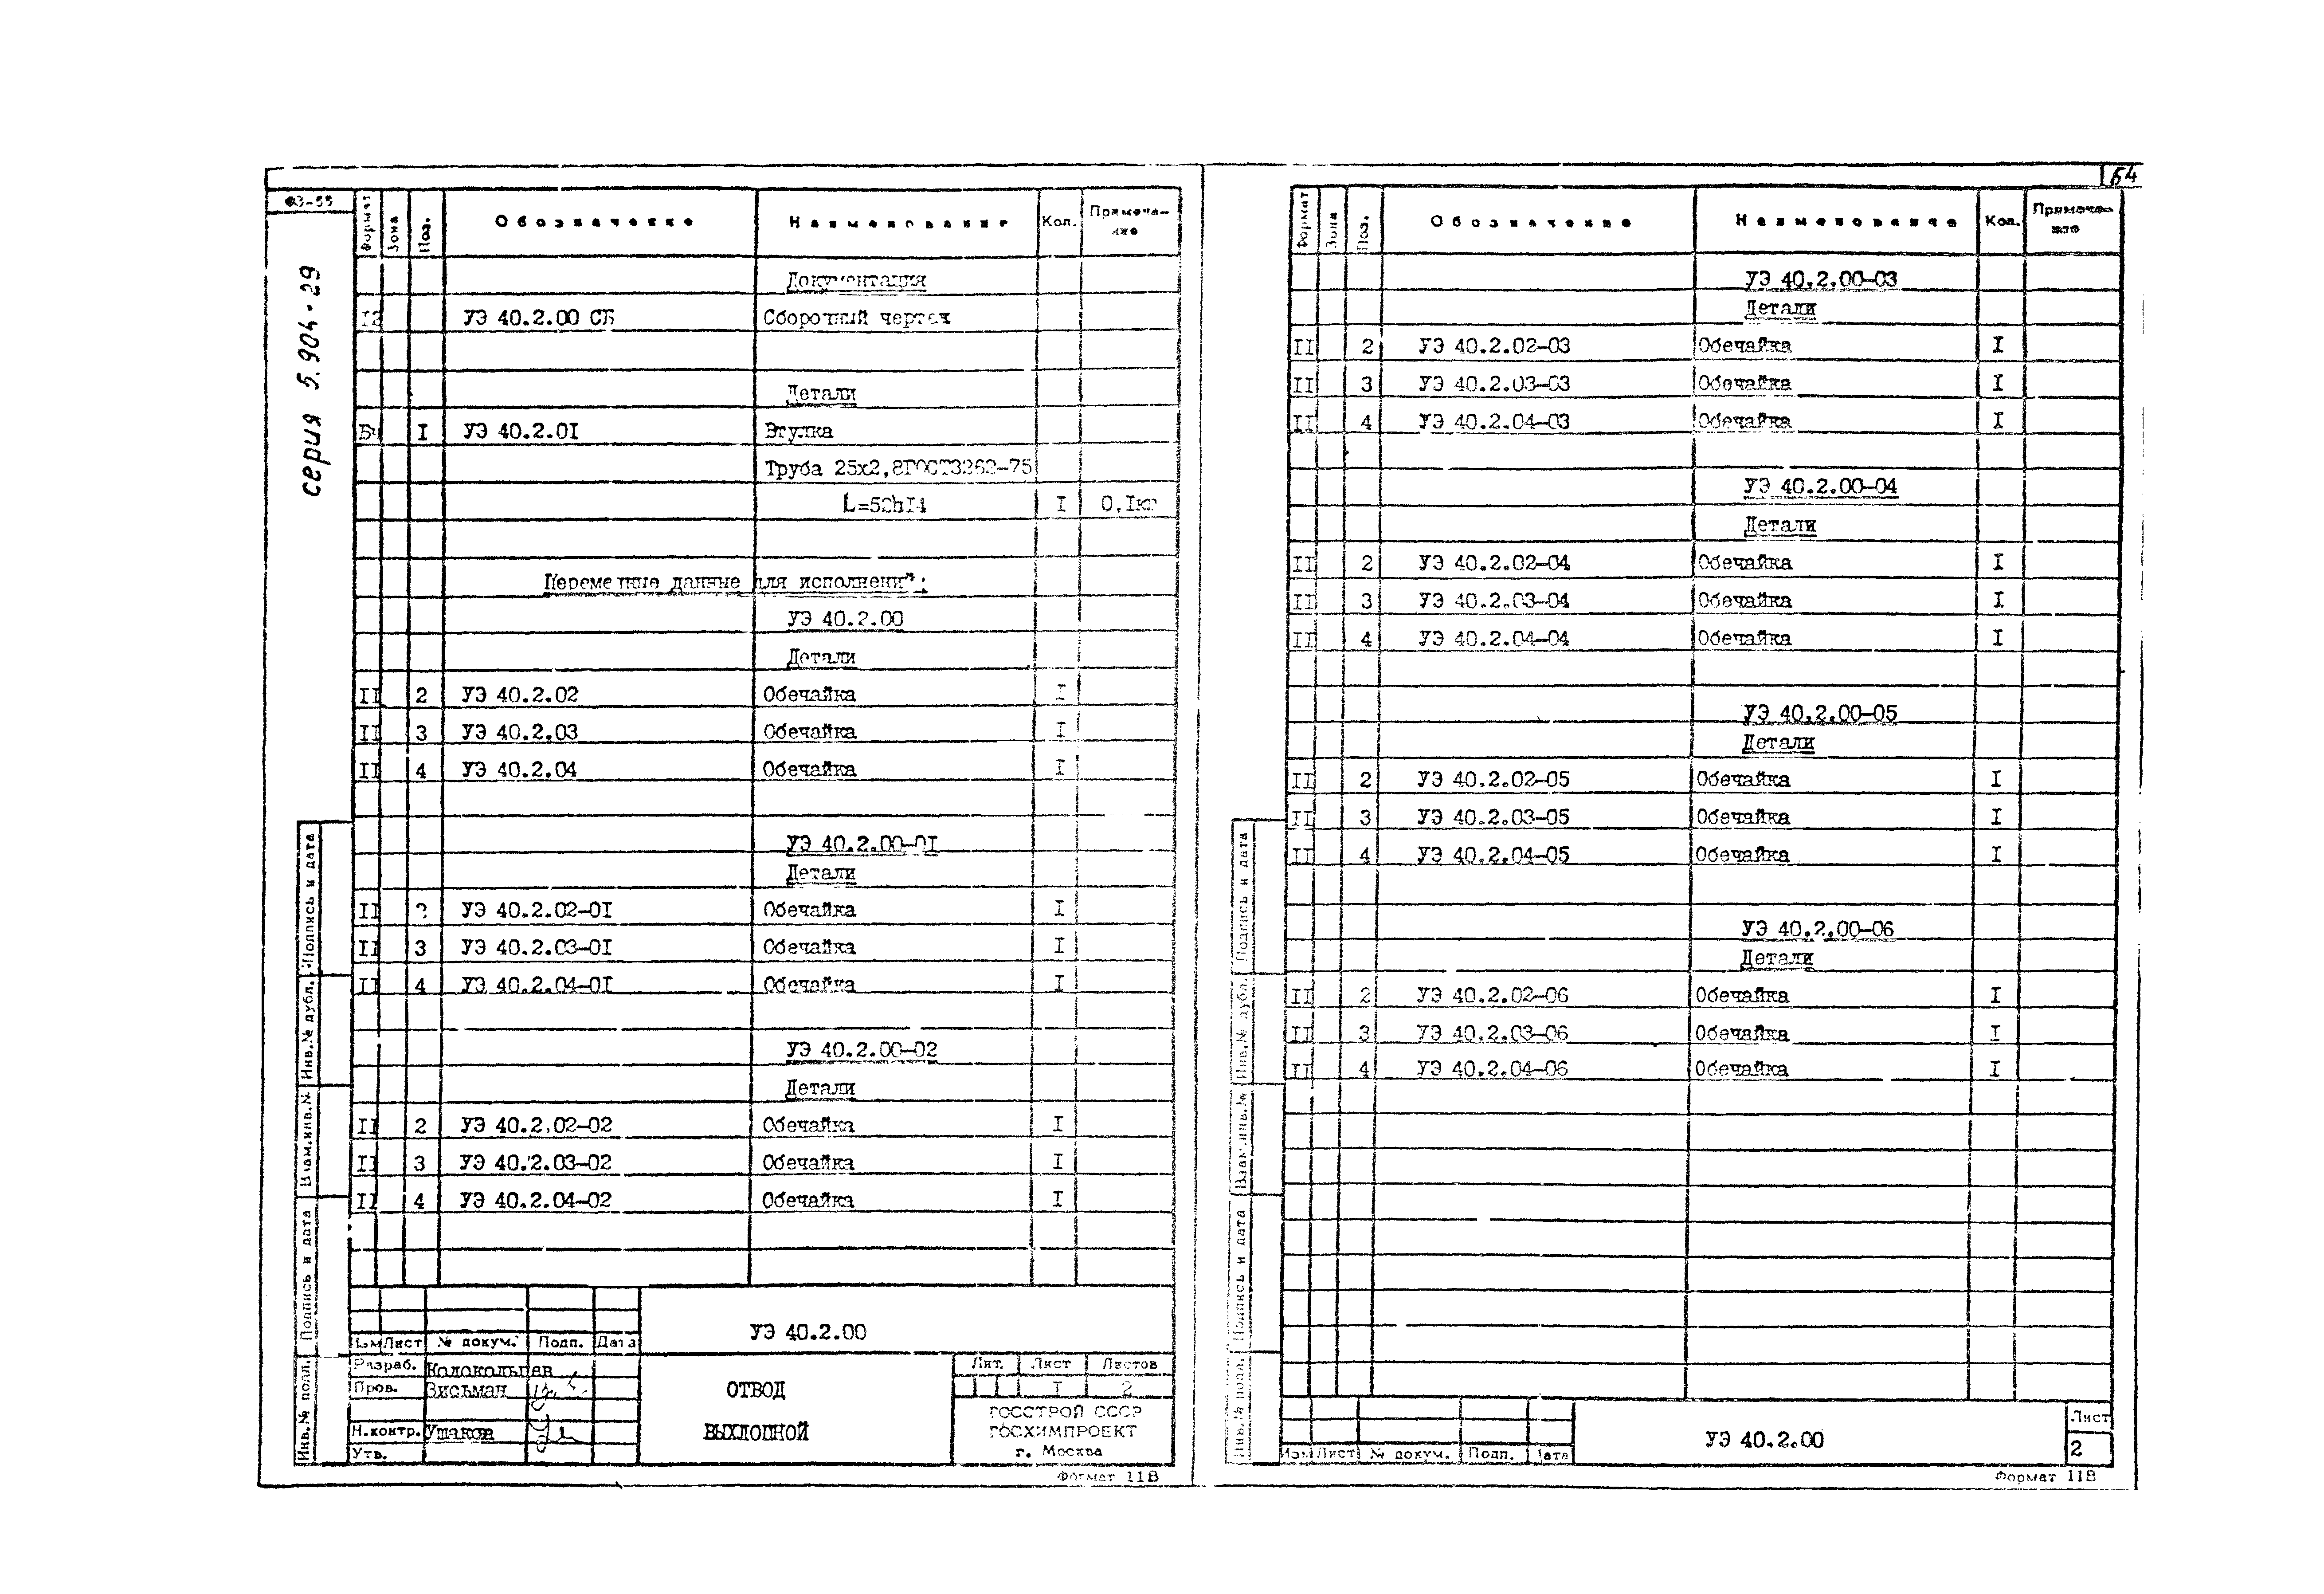 ФЗ-55
серия 5.904-29
Формат Зона Поз. Обозначение Наименование Кол. Примеча-
ние
Документация
12 УЭ 40.2.00 СБ Сборочный чертеж
Детали
Бч I УЭ 40.2.0I Втулка
Труба 25х2,8ГОСТ3262-75
L=52hI4 I 0,Iкг
Переменные данные для исполнений:
УЭ 40.2.00
Детали
II 2 УЭ 40.2.02 Обечайка I
II 3 УЭ 40.2.03 Обечайка I
II 4 УЭ 40.2.04 Обечайка I
УЭ 40.2.00-0I
Детали
II 2 УЭ 40.2.02-0I Обечайка I
II 3 УЭ 40.2.03-0I Обечайка I
II 4 УЭ 40.2.04-0I Обечайка I
УЭ 40.2.00-02
Детали
II 2 УЭ 40.2.02-02 Обечайка I
II 3 УЭ 40.2.03-02 Обечайка I
II 4 УЭ 40.2.04-02 Обечайка I
Подпись и дата
Инв.№ дубл.
Взам.инв.№
Подпись и дата
Инв.№ подл.
УЭ 40.2.00
Изм Лист № докум. Подп. Дата
Разраб. Колокольцев
Пров. Зисьман
Н.контр. Ушаков
Утв.
ОТВОД
ВЫХЛОПНОЙ
Лит. Лист Листов
I 2
ГОССТРОЙ СССР
ГОСХИМПРОЕКТ
г. Москва
Формат 11В
64
Формат Зона Поз. Обозначение Наименование Кол. Примеча-
ние
УЭ 40.2.00-03
Детали
II 2 УЭ 40.2.02-03 Обечайка I
II 3 УЭ 40.2.03-03 Обечайка I
II 4 УЭ 40.2.04-03 Обечайка I
УЭ 40.2.00-04
Детали
II 2 УЭ 40.2.02-04 Обечайка I
II 3 УЭ 40.2.03-04 Обечайка I
II 4 УЭ 40.2.04-04 Обечайка I
УЭ 40.2.00-05
Детали
II 2 УЭ 40.2.02-05 Обечайка I
II 3 УЭ 40.2.03-05 Обечайка I
II 4 УЭ 40.2.04-05 Обечайка I
УЭ 40.2.00-06
Детали
II 2 УЭ 40.2.02-06 Обечайка I
II 3 УЭ 40.2.03-06 Обечайка I
II 4 УЭ 40.2.04-06 Обечайка I
Подпись и дата
Инв.№ дубл.
Взам.инв.№
Подпись и дата
Инв.№ подл.
Изм Лист № докум. Подп. Дата
УЭ 40.2.00
Лист
2
Формат 11В